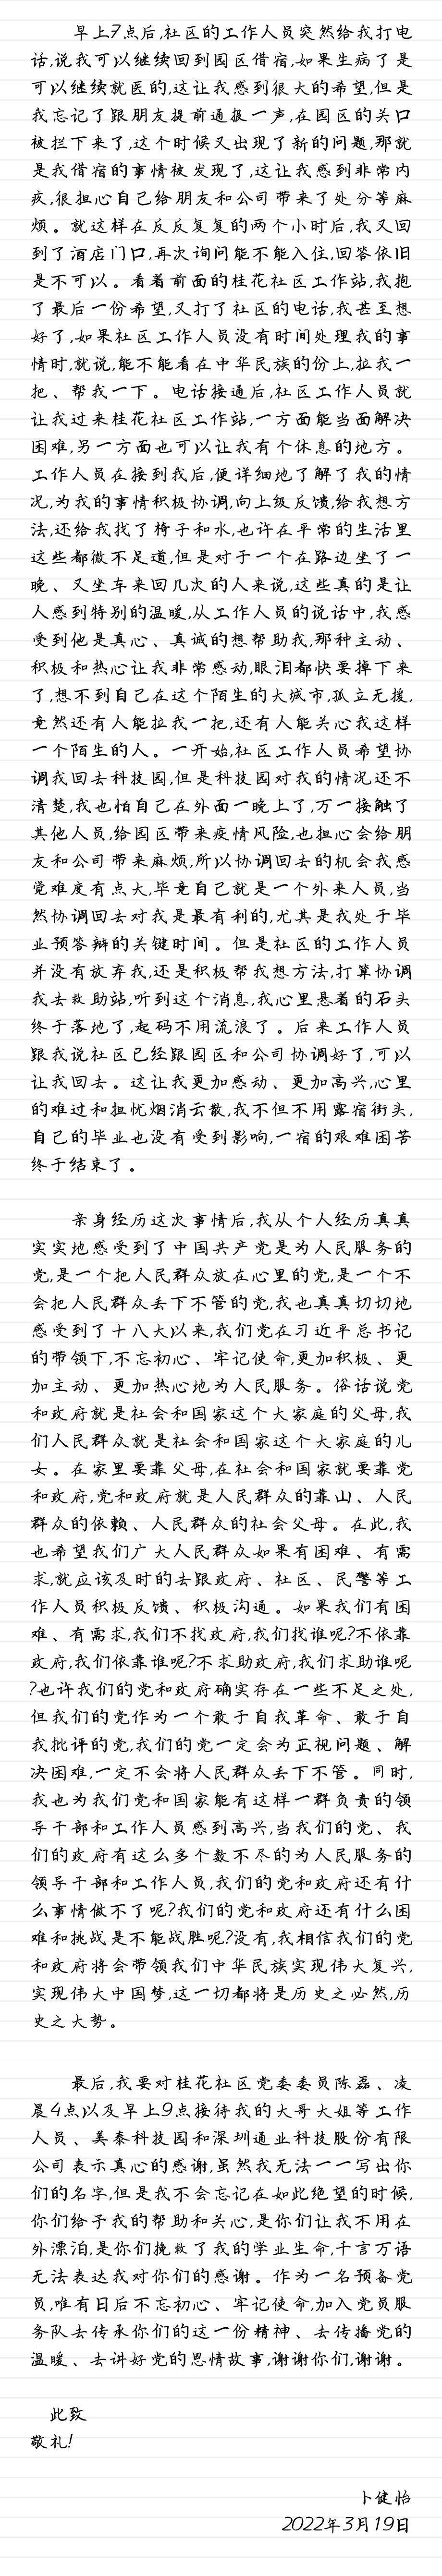 早上7点后,社区的工作人员突然给我打电
话,说我可以继续回到园区借宿,如果生病了是
可以继续就医的,这让我感到很大的希望,但是
我忘记了跟朋友提前通报一声,在园区的关口
被拦下来了,这个时候又出现了新的问题,那就
是我借宿的事情被发现了,这让我感到非常内
疚,很担心自己给朋友和公司带来了处分等麻
烦。就这样在反反复复的两个小时后,我又回
到了酒店门口,再次询问能不能入住,回答依旧
是不可以。看着前面的桂花社区工作站,我抱
了最后一份希望,又打了社区的电话,我甚至想
好了,如果社区工作人员没有时间处理我的事
情时,就说,能不能看在中华民族的份上,拉我一
把、帮我一下。电话接通后,社区工作人员就
让我过来桂花社区工作站,一方面能当面解决
困难,另一方面也可以让我有个休息的地方。
工作人员在接到我后,便详细地了解了我的情
况,为我的事情积极协调,向上级反馈,给我想方
法,还给我找了椅子和水,也许在平常的生活里
这些都微不足道,但是对于一个在路边坐了一
晚、又坐车来回几次的人来说,这些真的是让
人感到特别的温暖,从工作人员的说话中,我感
受到他是真心、真诚的想帮助我,那种主动、
积极和热心让我非常感动,眼泪都快要掉下来
了,想不到自己在这个陌生的大城市,孤立无援,
竟然还有人能拉我一把,还有人能关心我这样
一个陌生的人。一开始,社区工作人员希望协
调我回去科技园,但是科技园对我的情况还不
清楚,我也怕自己在外面一晚上了,万一接触了
其他人员,给园区带来疫情风险,也担心会给朋
友和公司带来麻烦,所以协调回去的机会我感
觉难度有点大,毕竟自己就是一个外来人员,当
然协调回去对我是最有利的,尤其是我处于毕
业预答辩的关键时间。但是社区的工作人员
并没有放弃我,还是积极帮我想方法,打算协调
我去救助站,听到这个消息,我心里悬着的石头
终于落地了,起码不用流浪了。后来工作人员
跟我说社区已经跟园区和公司协调好了,可以
让我回去。这让我更加感动、更加高兴,心里
的难过和担忧烟消云散,我不但不用露宿街头,
自己的毕业也没有受到影响,一宿的艰难困苦
终于结束了。
亲身经历这次事情后,我从个人经历真真
实实地感受到了中国共产党是为人民服务的
党,是一个把人民群众放在心里的党,是一个不
会把人民群众丢下不管的党,我也真真切切地
感受到了十八大以来,我们党在习近平总书记
的带领下,不忘初心、牢记使命,更加积极、更
加主动、更加热心地为人民服务。俗话说党
和政府就是社会和国家这个大家庭的父母,我
们人民群众就是社会和国家这个大家庭的儿
女。在家里要靠父母,在社会和国家就要靠党
和政府,党和政府就是人民群众的靠山、人民
群众的依赖、人民群众的社会父母。在此,我
也希望我们广大人民群众如果有困难、有需
求,就应该及时的去跟政府、社区、民警等工
作人员积极反馈、积极沟通。如果我们有困
难、有需求,我们不找政府,我们找谁呢?不依靠
政府,我们依靠谁呢?不求助政府,我们求助谁呢
?也许我们的党和政府确实存在一些不足之处,
但我们的党作为一个敢于自我革命、敢于自
我批评的党,我们的党一定会为正视问题、解
决困难,一定不会将人民群众丢下不管。同时,
我也为我们党和国家能有这样一群负责的领
导干部和工作人员感到高兴,当我们的党、我
们的政府有这么多个数不尽的为人民服务的
领导干部和工作人员,我们的党和政府还有什
么事情做不了呢?我们的党和政府还有什么困
难和挑战是不能战胜呢?没有,我相信我们的党
和政府将会带领我们中华民族实现伟大复兴,
实现伟大中国梦,这一切都将是历史之必然,历
史之大势。
最后,我要对桂花社区党委委员陈磊、凌
晨4点以及早上9点接待我的大哥大姐等工作
人员、美泰科技园和深圳通业科技股份有限
公司表示真心的感谢,虽然我无法一一写出你
们的名字,但是我不会忘记在如此绝望的时候,
你们给予我的帮助和关心,是你们让我不用在
外漂泊,是你们挽救了我的学业生命,千言万语
无法表达我对你们的感谢。作为一名预备党
员,唯有日后不忘初心、牢记使命,加入党员服
务队去传承你们的这一份精神、去传播党的
温暖、去讲好党的恩情故事,谢谢你们,谢谢。
此致
敬礼!
卜健怡
2022年3月19日